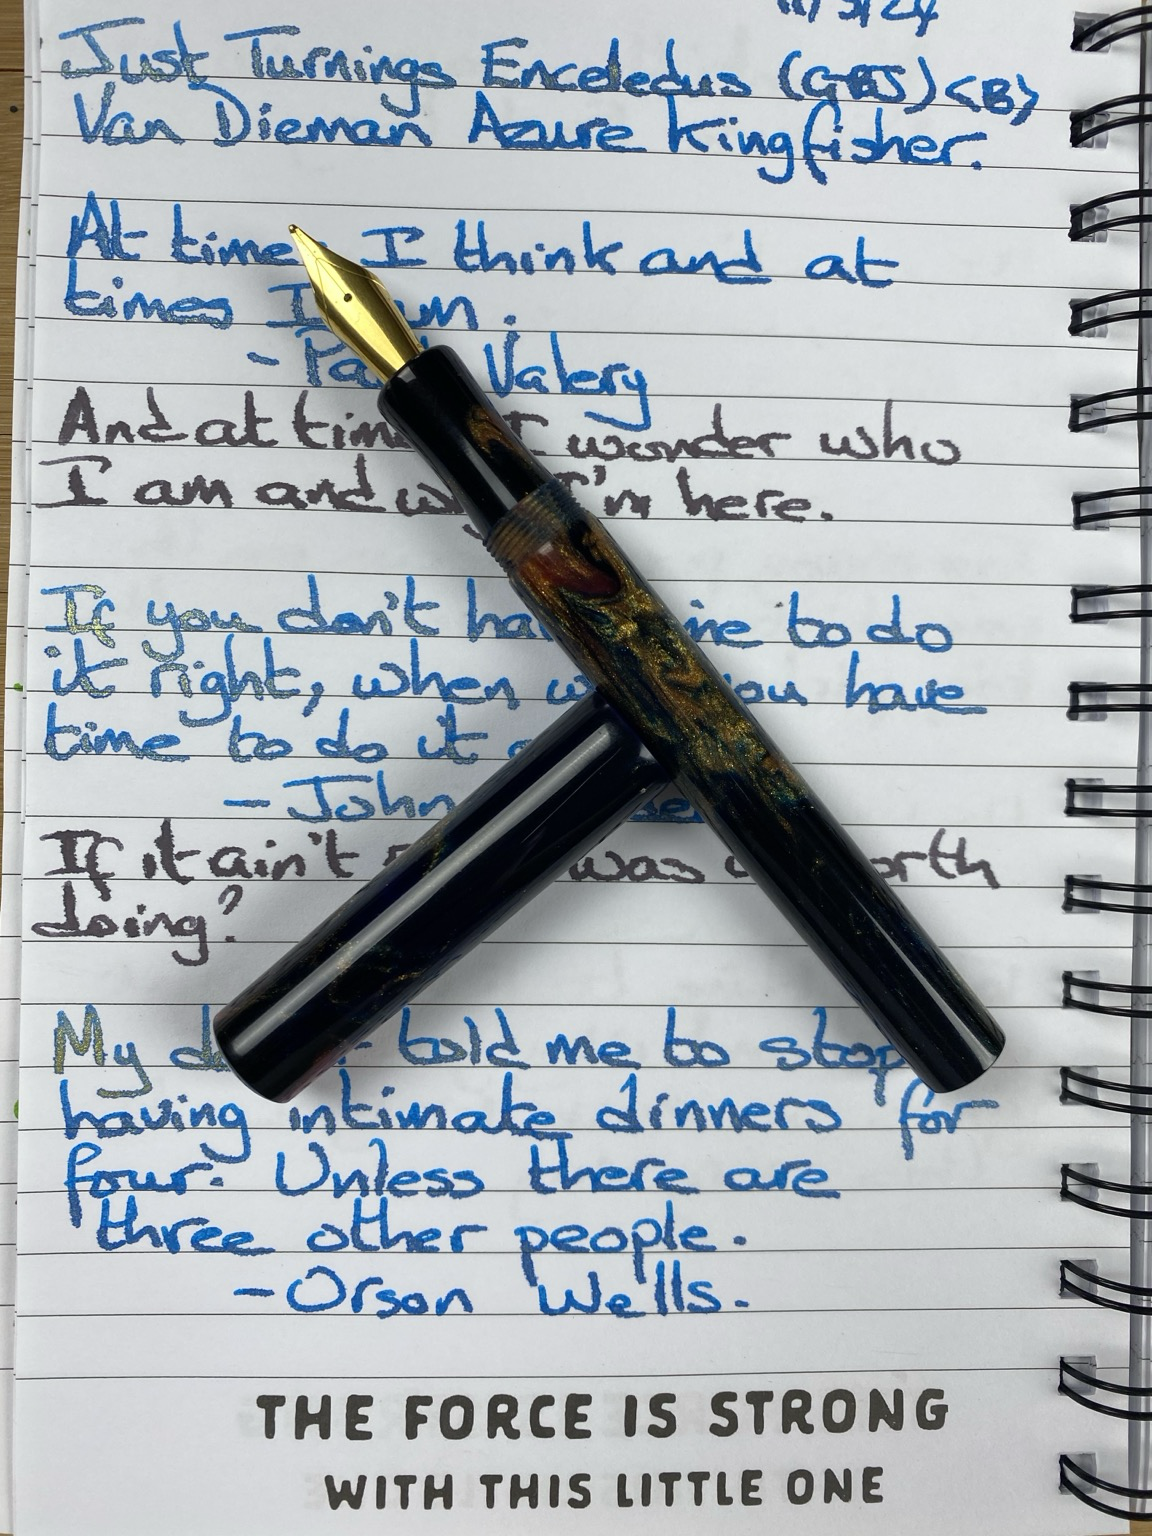 11/3/24
Just Turnings Enceledus (GBS) <B>
Van Dieman Azure Kingfisher.
At times I think and at
times I am.
- Paul Valery
And at times I wonder who
I am and why I'm here.
If you don't have time to do
it right, when will you have
time to do it
- John
If it ain't was worth
doing?
My doctor told me to stop
having intimate dinners for
four. Unless there are
three other people.
- Orson Wells.
THE FORCE IS STRONG
WITH THIS LITTLE ONE